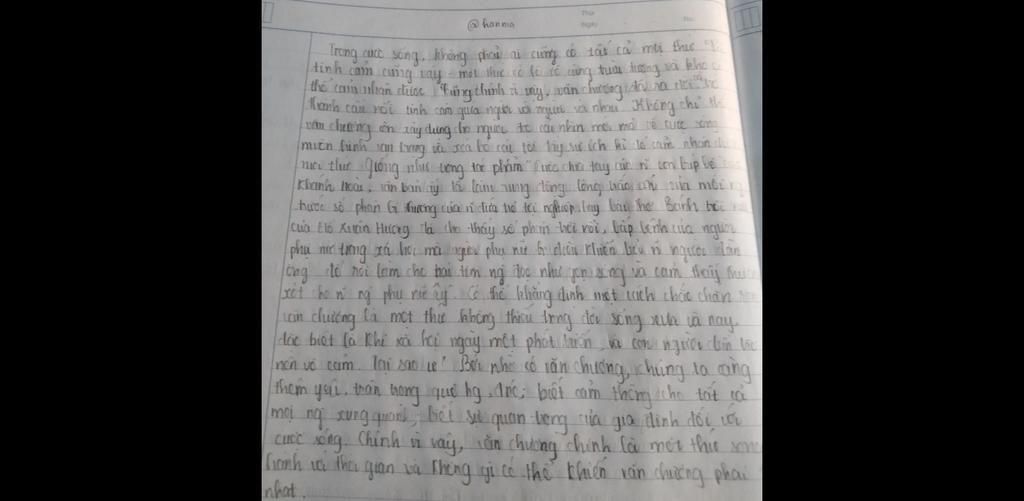 Thứ
Ngày
No.
@hanma
Trong cuộc sống, không phải ai cũng có tất cả mọi thứ
tình cảm cũng vậy - một thứ có lẽ vô cùng trừu tượng và khó
thể cảm nhận được. Cũng chính vì vậy, văn chương đã ra đời
thành cầu nối tình cảm giữa người với người và nhau. Không chỉ
văn chương còn xây dựng cho người ta cái nhìn mới mẻ về cuộc sống
muôn hình vạn trạng và xóa bỏ cái tôi đầy sự ích kỉ để cảm nhận
mọi thứ. Giống như trong tác phẩm "Cuộc chia tay của n~ con búp bê"
Khánh Hoài, văn bản ấy đã làm rung động lòng trắc ẩn của mỗi ng
trước số phận thương của n~ đứa trẻ tội nghiệp, hay bài thơ Bánh trôi
của Hồ Xuân Hương đã cho thấy số phận trôi nổi, bấp bênh của người
phụ nữ trong xã hội mà người phụ nữ bị điều khiển bởi n~ người đàn
ông đó nói làm cho trái tim ng đọc như gợn sóng và cảm thấy
xót cho n~ ng phụ nữ ấy. Có thể khẳng định một cách chắc chắn
văn chương là một thứ không thiếu trong đời sống xưa và nay,
đặc biệt là khi xã hội ngày một phát triển, và con người dần
nên vô cảm. Tại sao ư? Bởi nhờ có văn chương, chúng ta càng
thêm yêu, trân trọng quê hg, đnc; biết cảm thông cho tất cả
mọi ng xung quanh, biết sự quan trọng của gia đình đối với
cuộc sống. Chính vì vậy, văn chương chính là một thứ song
hành với thời gian và không gì có thể khiến văn chương phai
nhạt.